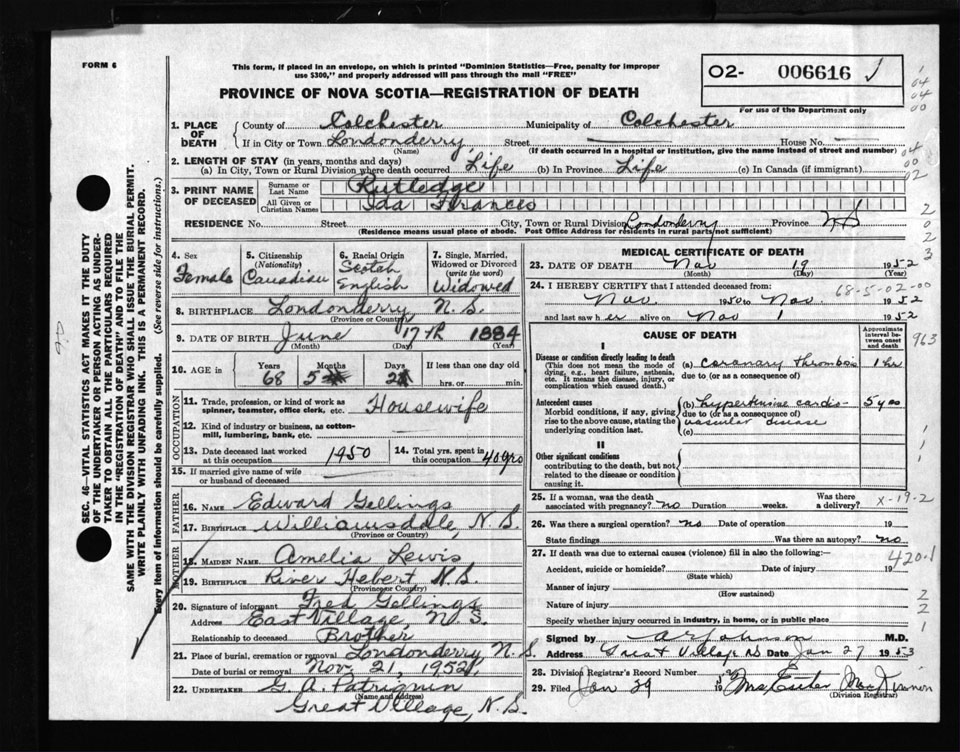 FORM 6
This form, if placed in an envelope, on which is printed "Dominion Statistics—Free, penalty for improper
use $300," and properly addressed will pass through the mail "FREE"
02- 006616
PROVINCE OF NOVA SCOTIA—REGISTRATION OF DEATH
For use of the Department only
1. PLACE OF DEATH County of Colchester Municipality of Colchester
If in City or Town Londonderry Street — House No. —
(Name) (If death occurred in a hospital or institution, give the name instead of street and number)
2. LENGTH OF STAY (in years, months and days)
(a) In City, Town or Rural Division where death occurred Life (b) In Province Life (c) In Canada (if immigrant)
3. PRINT NAME OF DECEASED Surname or Last Name Rutledge
All Given or Christian Names Ida Frances
RESIDENCE No. Street City, Town or Rural Division Londonderry Province N S
(Residence means usual place of abode. Post Office Address for residents in rural parts not sufficient)
4. Sex Female
5. Citizenship (Nationality) Canadian
6. Racial Origin Scotch English
7. Single, Married, Widowed or Divorced (write the word) Widowed
8. BIRTHPLACE Londonderry N. S.
(Province or Country)
9. DATE OF BIRTH June 17th 1884
(Month) (Day) (Year)
10. AGE in Years 68 Months 5 Days If less than one day old hrs. or min.
OCCUPATION
11. Trade, profession, or kind of work as spinner, teamster, office clerk, etc. Housewife
12. Kind of industry or business, as cotton-mill, lumbering, bank, etc.
13. Date deceased last worked at this occupation 1950
14. Total yrs. spent in this occupation 40 yrs
15. If married give name of wife or husband of deceased
FATHER
16. NAME Edward Gellings
17. BIRTHPLACE Williamsdale, N. S.
(Province or Country)
MOTHER
18. MAIDEN NAME Amelia Lewis
19. BIRTHPLACE River Hebert N.S.
(Province or Country)
20. Signature of informant Fred Gellings
Address East Village, N. S.
Relationship to deceased Brother
21. Place of burial, cremation or removal Londonderry, N. S.
Date of burial or removal Nov. 21, 1952
22. UNDERTAKER G. A.
(Name and address)
Great Village, N. S.
MEDICAL CERTIFICATE OF DEATH
23. DATE OF DEATH Nov 19 1952
(Month) (Day) (Year)
24. I HEREBY CERTIFY that I attended deceased from:
68-5-02-00
Nov. 1950 to Nov. 1952
and last saw her alive on Nov 1 1952
CAUSE OF DEATH
Approximate interval between onset and death
963
I
Disease or condition directly leading to death
(This does not mean the mode of dying, e.g., heart failure, asthenia, etc. It means the disease, injury, or complication which caused death.)
(a) Coronary thrombosis 1 hr
due to (or as a consequence of)
Antecedent causes
Morbid conditions, if any, giving rise to the above cause, stating the underlying condition last.
(b) hypertensive cardio- 5 yrs
due to (or as a consequence of)
vascular disease
(c)
II
Other significant conditions
contributing to the death, but not related to the disease or condition causing it.
25. If a woman, was the death associated with pregnancy? no Duration weeks. Was there a delivery?
X-19-2
26. Was there a surgical operation? no Date of operation 19
State findings Was there an autopsy? no
27. If death was due to external causes (violence) fill in also the following:—
420.1
Accident, suicide or homicide? Date of injury 19
(State which)
Manner of injury
(How sustained)
Nature of injury
Specify whether injury occurred in industry, in home, or in public place
Signed by A R Johnson M.D.
Address Great Village NS Date Jan 27 1953
28. Division Registrar's Record Number
29. Filed Jan 29 19 Mrs
(Division Registrar)
SEC. 46—VITAL STATISTICS ACT MAKES IT THE DUTY
OF THE UNDERTAKER OR PERSON ACTING AS UNDER-
TAKER TO OBTAIN ALL THE PARTICULARS REQUIRED
IN THE "REGISTRATION OF DEATH" AND TO FILE THE
SAME WITH THE DIVISION REGISTRAR WHO SHALL ISSUE THE BURIAL PERMIT.
WRITE PLAINLY WITH UNFADING INK. THIS IS A PERMANENT RECORD.
Every item of information should be carefully supplied. (See reverse side for instructions.)